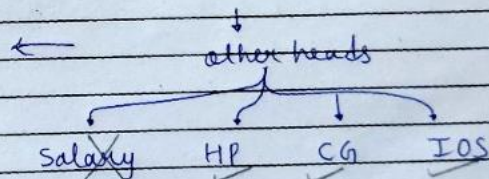 other heads
Salary HP CG IOS